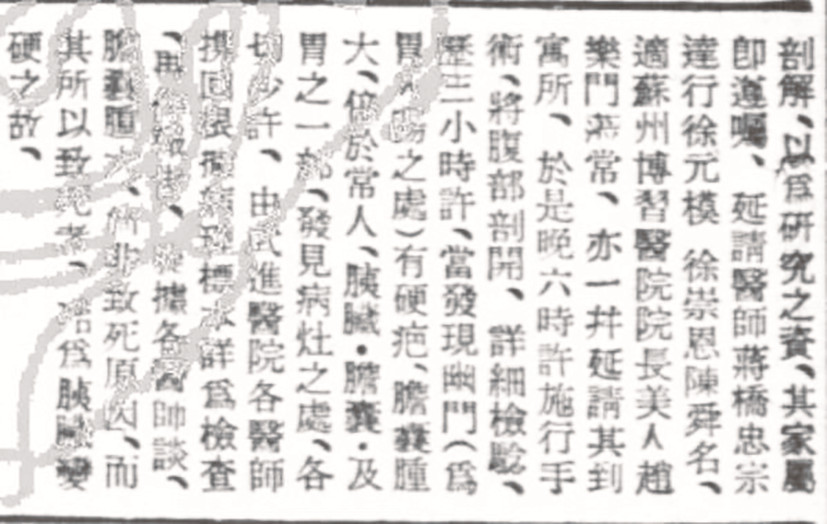 剖解、以爲研究之資、其家屬
卽遵囑、延請醫師蔣橋忠宗
達行徐元模 徐崇恩陳舜名、
適蘇州博習醫院院長美人趙
樂門蒞常、亦一幷延請其到
寓所、於是晚六時許施行手
術、將腹部剖開、詳細檢驗、
歷三小時許、當發現幽門（爲
胃入腸之處）有硬疤、膽囊腫
大、倍於常人、胰臟・膽囊・及
胃之一部、發見病灶之處、各
切少許、由武進醫院各醫師
携回根 標本詳爲檢查
、再 、 據各醫師談、
膽囊腫大、 非致死原因、而
其所以致死者、 爲胰臟變
硬之故、